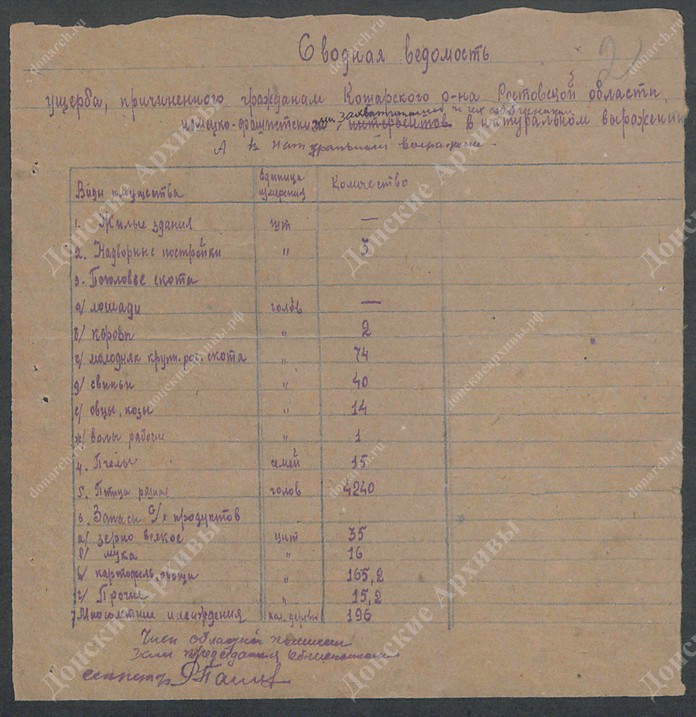 Сводная ведомость
2
ущерба, причиненного гражданам Кошарского р-на Ростовской области,
захватчиками и их сообщниками
немецко-фашистскими интервентов в натуральном выражении
А в натуральном выражении.
Виды имущества Единица измерения Количество
1. Жилые здания шт —
2. Надворные постройки " 3
3. Поголовье скота
а/ лошади голов —
б/ коровы " 2
в/ молодняк круп. рог. скота " 74
д/ свиньи " 40
е/ овцы, козы " 14
ж/ волы рабочие " 1
4. Пчелы семей 15
5. Птица разная голов 4240
6. Запасы с/х продуктов
а/ зерно всякое цнт 35
б/ мука " 16
в/ картофель, овощи " 165,2
г/ Прочие " 15,2
7. Многолетние насаждения кол. деревь 196
Член областной комиссии
Зам председателя облисполкома
секретарь
Донские Архивы
donarch.ru
донскиеархивы.рф